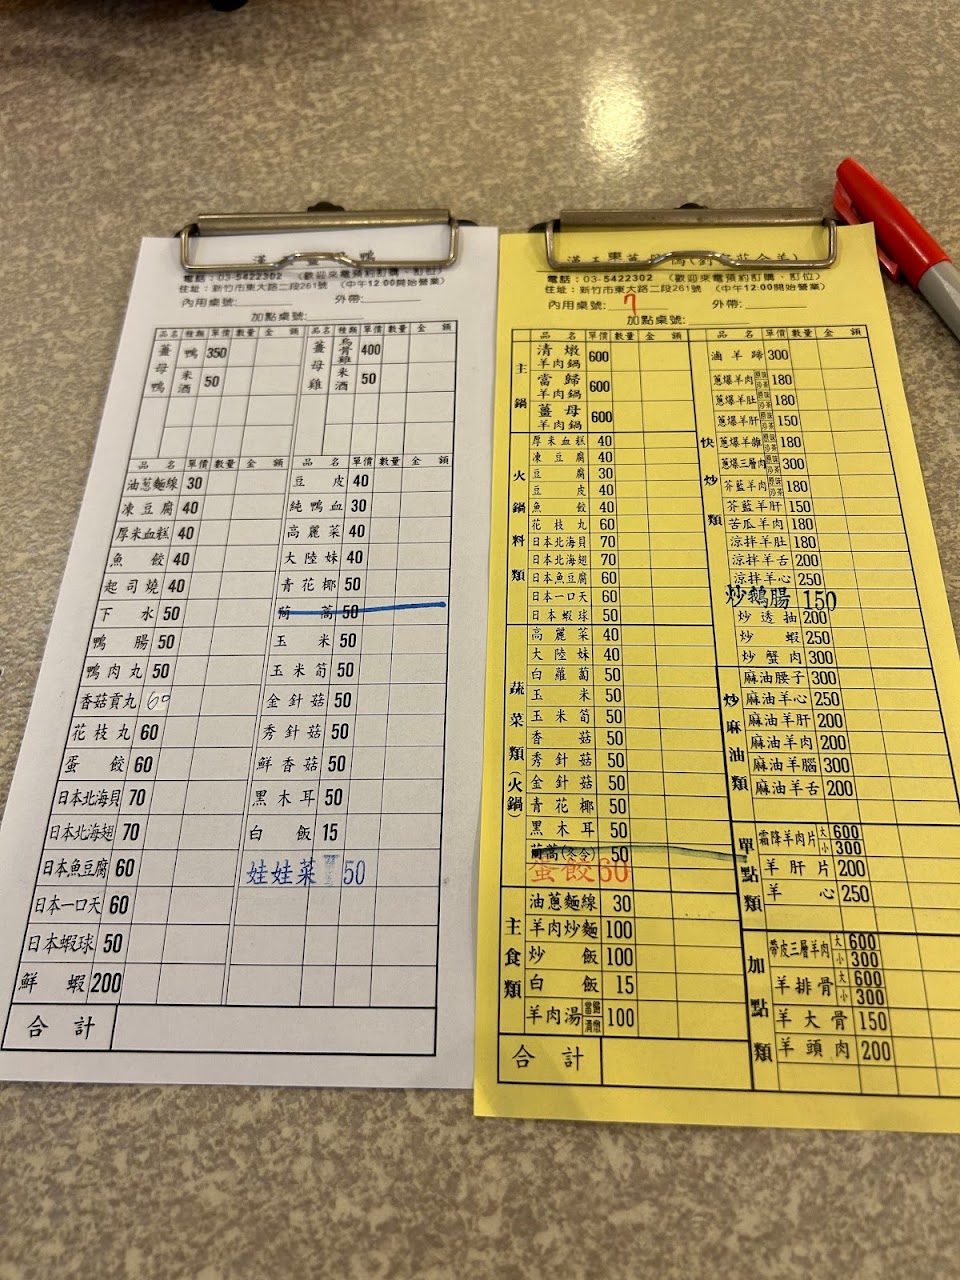 電話：03-5422302 （歡迎來電預約訂購、訂位）
住址：新竹市東大路二段261號 （中午12:00開始營業）
內用桌號： 外帶:
加點桌號:
品名 種類 單價 數量 金額 品名 種類 單價 數量 金額
薑母鴨 鴨 350 薑母雞 烏骨雞 400
米酒 50 米酒 50
品名 單價 數量 金額 品名 單價 數量 金額
油蔥麵線 30 豆皮 40
凍豆腐 40 純鴨血 30
厚米血糕 40 高麗菜 40
魚餃 40 大陸妹 40
起司燒 40 青花椰 50
下水 50 茼蒿 50
鴨腸 50 玉米 50
鴨肉丸 50 玉米筍 50
香菇貢丸 60 金針菇 50
花枝丸 60 秀針菇 50
蛋餃 60 鮮香菇 50
日本北海貝 70 黑木耳 50
日本北海翅 70 白飯 15
日本魚豆腐 60 娃娃菜 50
日本一口天 60
日本蝦球 50
鮮蝦 200
合計
電話：03-5422302 （歡迎來電預約訂購、訂位）
住址：新竹市東大路二段261號 （中午12:00開始營業）
內用桌號: 7 外帶:
加點桌號:
品名 單價 數量 金額
主鍋
清燉羊肉鍋 600
當歸羊肉鍋 600
薑母羊肉鍋 600
火鍋料類
厚米血糕 40
凍豆腐 40
豆腐 30
豆皮 40
魚餃 40
花枝丸 60
日本北海貝 70
日本北海翅 70
日本魚豆腐 60
日本一口天 60
日本蝦球 50
蔬菜類(火鍋)
高麗菜 40
大陸妹 40
白蘿蔔 50
玉米 50
玉米筍 50
香菇 50
秀針菇 50
金針菇 50
青花椰 50
黑木耳 50
茼蒿(冬令) 50
蛋餃60
主食類
油蔥麵線 30
羊肉炒麵 100
炒飯 100
白飯 15
羊肉湯 當歸 清燉 100
合計
品名 單價 數量 金額
快炒類
滷羊蹄 300
蔥爆羊肉 原味 沙茶 180
蔥爆羊肚 原味 沙茶 180
蔥爆羊肝 原味 沙茶 150
蔥爆羊雜 原味 沙茶 180
蔥爆三層肉 原味 沙茶 300
芥藍羊肉 原味 沙茶 180
芥藍羊肝 150
苦瓜羊肉 180
涼拌羊肚 180
涼拌羊舌 200
涼拌羊心 250
炒鵝腸 150
炒透抽 200
炒蝦 250
炒蟹肉 300
炒麻油類
麻油腰子 300
麻油羊心 250
麻油羊肝 200
麻油羊肉 200
麻油羊腦 300
麻油羊舌 200
單點類
霜降羊肉片 大 600 小 300
羊肝片 200
羊心 250
加點類
帶皮三層羊肉 大 600 小 300
羊排骨 大 600 小 300
羊大骨 150
羊頭肉 200